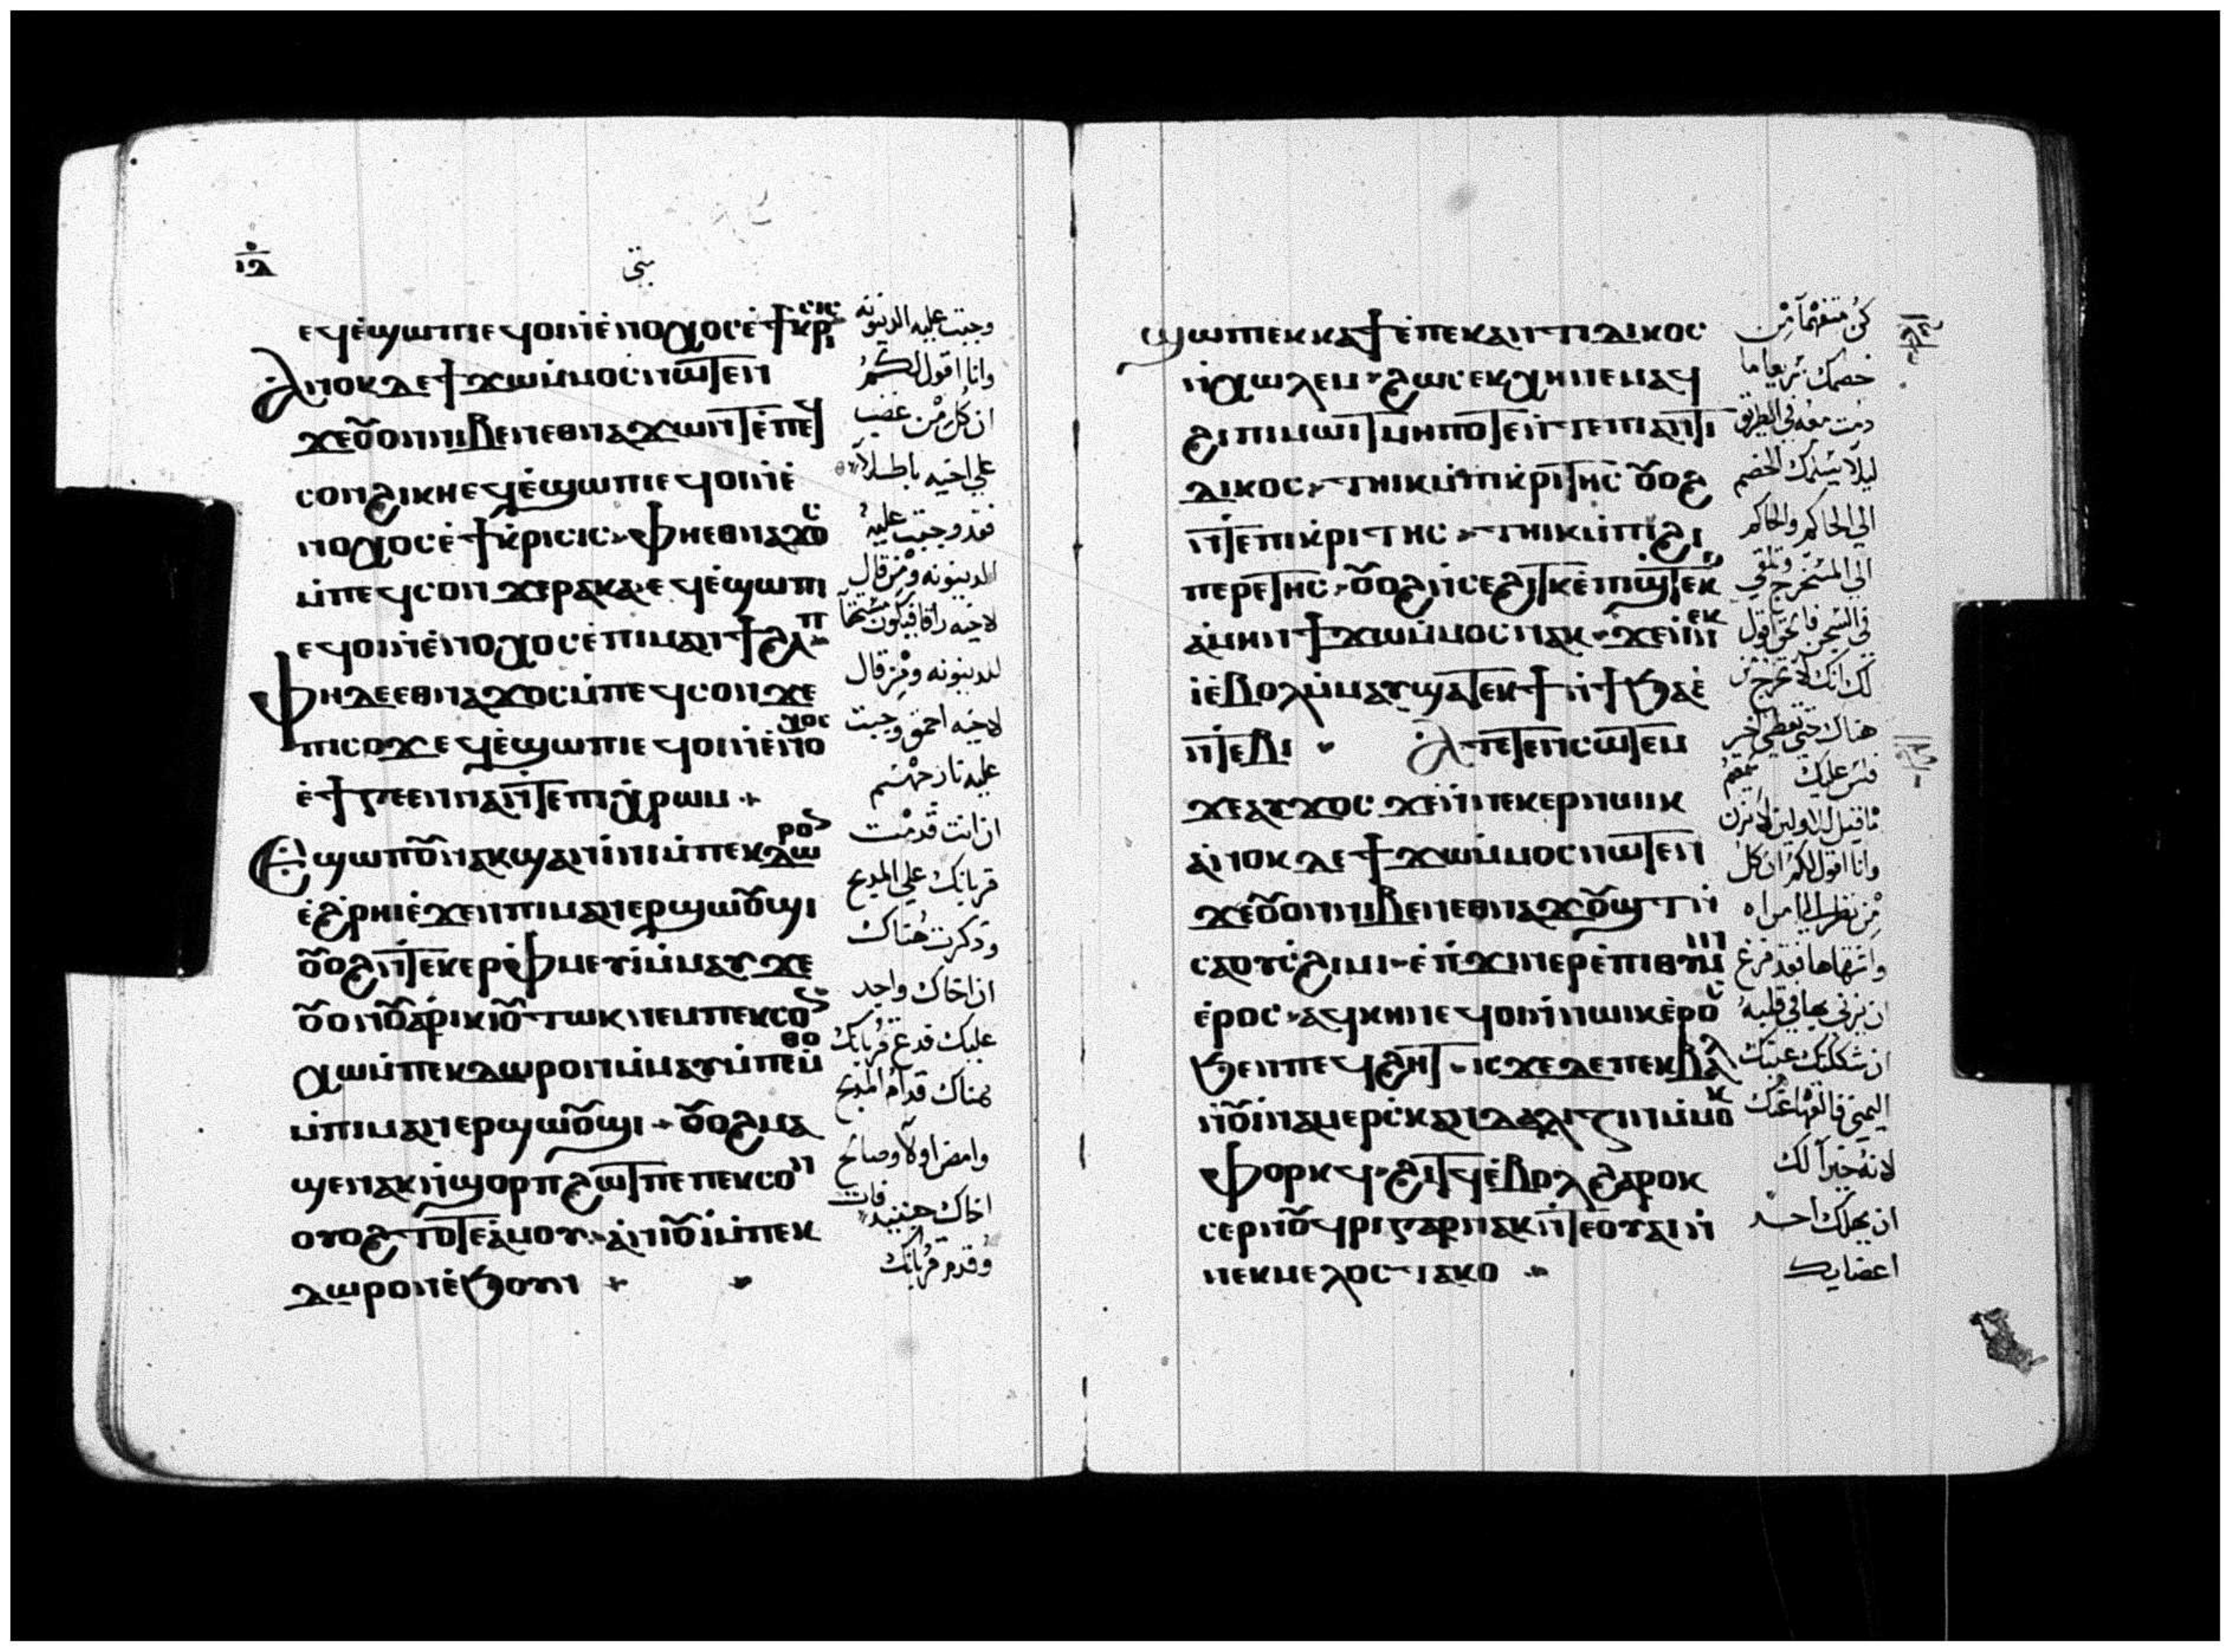 ⲓⲇ
متى
ⲉϥⲉ̀ϣⲱⲡⲓ ⲉϥⲟⲓ ⲛ̀ⲉ̀ⲛⲟⲭⲟⲥ ⲉ̀ϯⲕⲣⲓⲥⲓⲥ
Ⲁⲛⲟⲕ ⲇⲉ ϯϫⲱ ⲙ̀ⲙⲟⲥ ⲛⲱⲧⲉⲛ
ϫⲉ ⲟⲩⲟⲛ ⲛⲓⲃⲉⲛ ⲉⲑⲛⲁϫⲱⲛⲧ ⲉ̀ⲡⲉϥ
ⲥⲟⲛ ϩⲓⲕⲏ ⲉϥⲉ̀ϣⲱⲡⲓ ⲉϥⲟⲓ ⲛ̀ⲉ̀
ⲛⲟⲭⲟⲥ ⲉ̀ϯⲕⲣⲓⲥⲓⲥ ⲫⲏ ⲉⲑⲛⲁϫⲟⲥ
ⲙ̀ⲡⲉϥⲥⲟⲛ ϫⲉ ⲣⲁⲕⲁ ⲉϥⲉ̀ϣⲱⲡⲓ
ⲉϥⲟⲓ ⲛ̀ⲉ̀ⲛⲟⲭⲟⲥ ⲉ̀ⲡⲓⲙⲁ ⲛ̀ϯϩⲁⲡ
Ⲫⲏ ⲇⲉ ⲉⲑⲛⲁϫⲟⲥ ⲙ̀ⲡⲉϥⲥⲟⲛ ϫⲉ
ⲡⲓⲥⲟϫ ⲉϥⲉ̀ϣⲱⲡⲓ ⲉϥⲟⲓ ⲛ̀ⲉ̀ⲛⲟⲭⲟⲥ
ⲉ̀ϯⲅⲉⲉⲛⲛⲁ ⲛ̀ⲧⲉ ⲡⲓⲭⲣⲱⲙ
Ⲉϣⲱⲡ ⲟⲩⲛ ⲁⲕϣⲁⲛⲓ̀ⲛⲓ ⲙ̀ⲡⲉⲕⲇⲱⲣⲟⲛ
ⲉ̀ϩ̀ⲣⲏⲓ ⲉ̀ϫⲉⲛ ⲡⲓⲙⲁⲛⲉⲣϣⲱⲟⲩϣⲓ
ⲟⲩⲟϩ ⲛ̀ⲧⲉⲕⲉⲣⲫⲙⲉⲩⲓ̀ ⲙ̀ⲙⲁⲩ ϫⲉ
ⲟⲩⲟⲛ ⲟⲩⲁⲣⲓⲕⲓ ⲟⲩⲧⲱⲕ ⲛⲉⲙ ⲡⲉⲕⲥⲟⲛ
ⲭⲱ ⲙ̀ⲡⲉⲕⲇⲱⲣⲟⲛ ⲙ̀ⲙⲁⲩ ⲙ̀ⲡⲉⲙ̀ⲑⲟ
ⲙ̀ⲡⲓⲙⲁⲛⲉⲣϣⲱⲟⲩϣⲓ ⲟⲩⲟϩ ⲙⲁ
ϣⲉⲛⲁⲕ ⲛ̀ϣⲟⲣⲡ ϩⲱⲧⲡ ⲉⲡⲉⲕⲥⲟⲛ
ⲟⲩⲟϩ ⲧⲟⲧⲉ ⲁ̀ⲙⲟⲩ ⲁ̀ⲛⲓⲟⲩⲓ̀ ⲙ̀ⲡⲉⲕ
ⲇⲱⲣⲟⲛ ⲉ̀ϧⲟⲩⲛ
وجبت عليه الدينونه
وانا اقول لكم
ان كل من غضب
علي اخيه باطلاً
فقد وجبت عليه
الدينونه ومن قال
لاخيه راقا فيكون مستحقاً
للدينونه ومن قال
لاخيه احمق وجبت
عليه نار جهنم
ان انت قدمت
قربانك علي المذبح
وذكرت هناك
ان اخاك واجد
عليك فدع قربانك
هناك قدام المذبح
وامض اولاً وصالح
اخاك حينيذ فات
وقدم قربانك
ϣⲱⲡⲓ ⲉⲕⲕⲁϯ ⲉ̀ⲡⲉⲕⲁⲛⲧⲓⲇⲓⲕⲟⲥ
ⲛ̀ⲭⲱⲗⲉⲙ ϩⲱⲥ ⲉⲕⲭⲏ ⲛⲉⲙⲁϥ
ϩⲓ ⲡⲓⲙⲱⲓⲧ ⲙⲏⲡⲟⲧⲉ ⲛ̀ⲧⲉ ⲡⲓⲁⲛⲧⲓ
ⲇⲓⲕⲟⲥ ⲧⲏⲓⲕ ⲙ̀ⲡⲓⲕⲣⲓⲧⲏⲥ ⲟⲩⲟϩ
ⲛ̀ⲧⲉ ⲡⲓⲕⲣⲓⲧⲏⲥ ⲧⲏⲓⲕ ⲙ̀ⲡⲓϩⲓ
ⲡⲉⲣⲉⲧⲏⲥ ⲟⲩⲟϩ ⲛ̀ⲥⲉϩⲓⲧⲕ ⲉ̀ⲡϣⲧⲉⲕⲟ
ⲁ̀ⲙⲏⲛ ϯϫⲱ ⲙ̀ⲙⲟⲥ ⲛⲁⲕ ϫⲉ ⲛ̀ⲛⲉⲕ
ⲓ̀ ⲉ̀ⲃⲟⲗ ⲙ̀ⲙⲁⲩ ϣⲁⲧⲉⲕϯ ⲛ̀ϯϧⲁⲉ̀
ⲛ̀ⲧⲉⲃⲓ Ⲁⲧⲉⲧⲉⲛⲥⲱⲧⲉⲙ
ϫⲉ ⲁⲩϫⲟⲥ ϫⲉ ⲛ̀ⲛⲉⲕⲉⲣⲛⲱⲓⲕ
ⲁ̀ⲛⲟⲕ ⲇⲉ ϯϫⲱ ⲙ̀ⲙⲟⲥ ⲛⲱⲧⲉⲛ
ϫⲉ ⲟⲩⲟⲛ ⲛⲓⲃⲉⲛ ⲉⲑⲛⲁϫⲟⲩϣⲧ ⲛ̀
ⲥⲁ ⲟⲩⲥϩⲓⲙⲓ ⲉ̀ⲡϫⲓⲛⲉⲣⲉⲡⲓⲑⲩⲙⲓⲛ
ⲉ̀ⲣⲟⲥ ⲁϥⲕⲏⲛ ⲉϥⲟⲓ ⲛ̀ⲛⲱⲓⲕ ⲉ̀ⲣⲟⲥ
ϧⲉⲛ ⲡⲉϥϩⲏⲧ ⲓⲥϫⲉ ⲇⲉ ⲡⲉⲕⲃⲁⲗ
ⲛ̀ⲟⲩⲓ̀ⲛⲁⲙ ⲉⲣⲥⲕⲁⲛⲇⲁⲗⲓⲍⲓⲛ ⲙ̀ⲙⲟⲕ
ⲫⲟⲣⲕϥ ϩⲓⲧϥ ⲉ̀ⲃⲟⲗ ϩⲁⲣⲟⲕ
ⲥⲉⲣⲛⲟϥⲣⲓ ⲅⲁⲣ ⲛⲁⲕ ⲛ̀ⲧⲉ ⲟⲩⲁⲓ ⲛ̀
ⲛⲉⲕⲙⲉⲗⲟⲥ ⲧⲁⲕⲟ
كن متفهماً من
خصمك سريعا ما
دمت معه في الطريق
ليلا يسلمك الخصم
الي الحاكم والحاكم
الي المستخرج وتلقي
في السجن فالحق اقول
لك انك لا تخرج من
هناك حتي تعطي اخر
فلس عليك سمعتم
ما قيل للاولين لا تزن
وانا اقول لكم ان كل
من نظر الي امراه
واشتهاها فقد فرغ
ان يزني بها في قلبه
ان شككتك عينك
اليمني فاقلعها عنك
لانه خيراً لك
ان يهلك احد
اعضايك